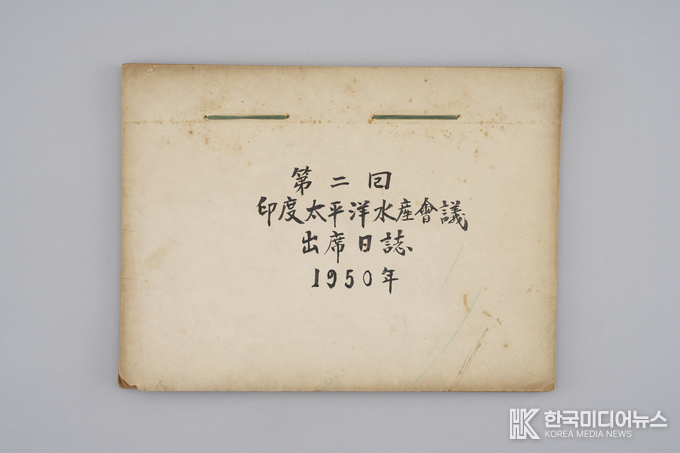 第二回
印度太平洋水産會議
出席日誌
1950年
한국미디어뉴스
KOREA MEDIA NEWS